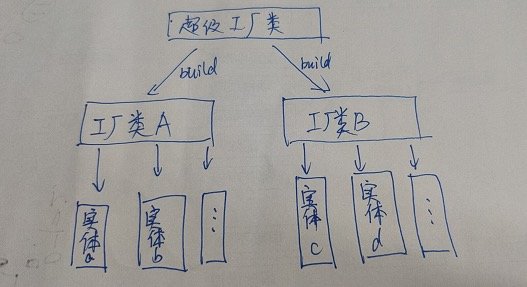 超级工厂类
build
build
工厂类A
工厂类B
实体a
实体b
⋮
实体c
实体d
⋮